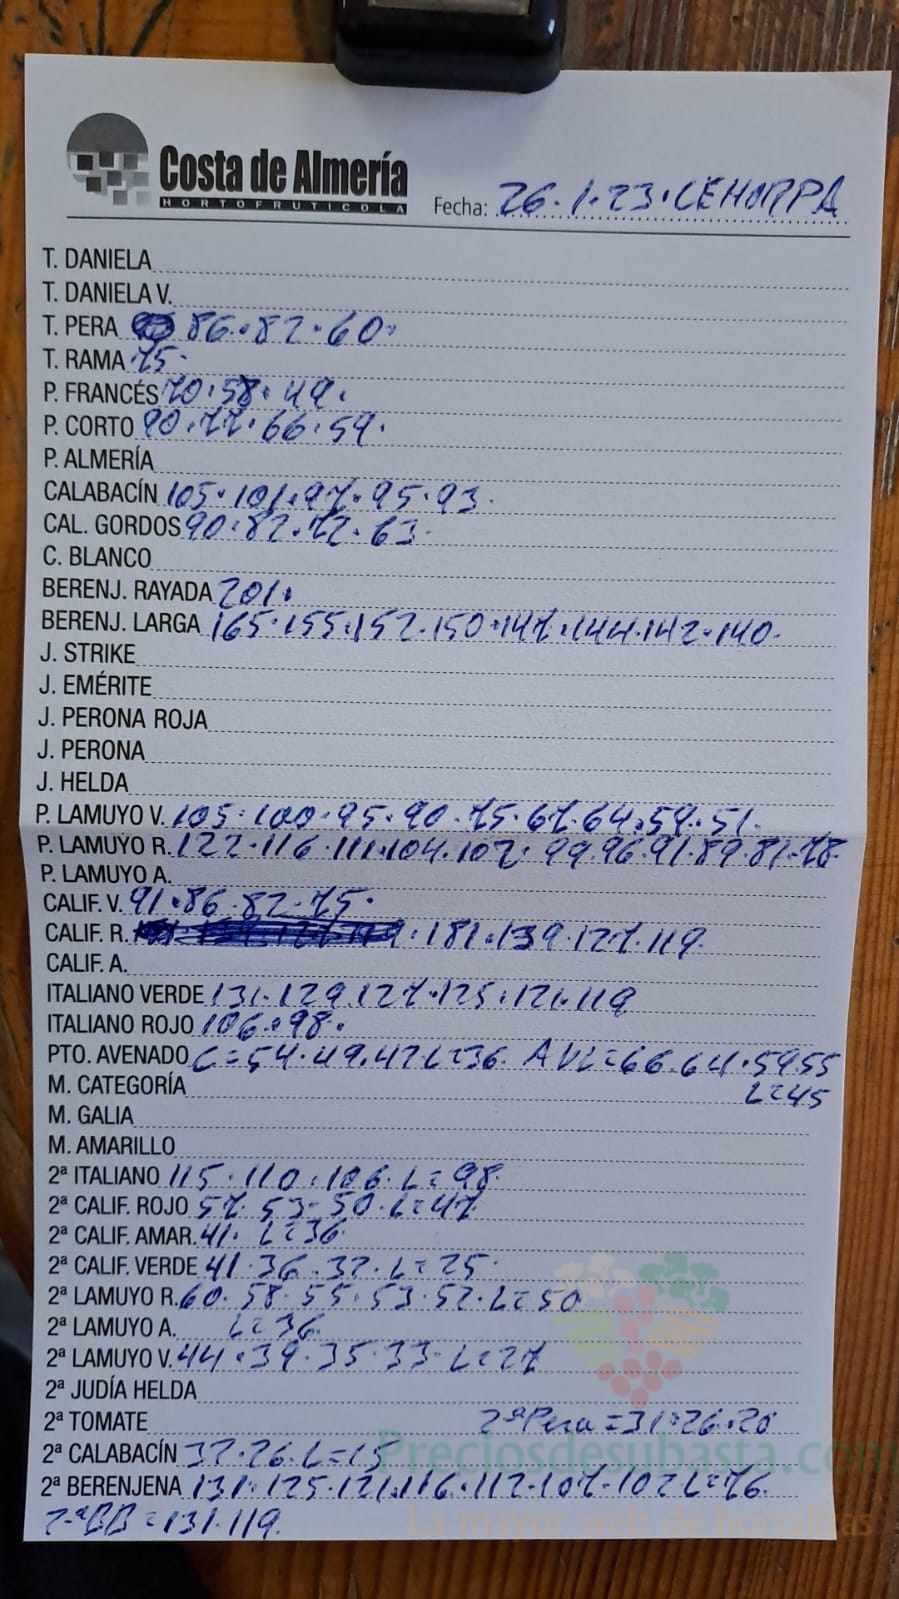 Costa de Almería
HORTOFRUTICOLA
Fecha: 26.1.23.CEHORPA
T. DANIELA
T. DANIELA V.
T. PERA 86.82.60.
T. RAMA 75.
P. FRANCÉS 70.58.49.
P. CORTO 90.77.66.59.
P. ALMERÍA
CALABACÍN 105.101.97.95.93.
CAL. GORDOS 90.82.72.63.
C. BLANCO
BERENJ. RAYADA 201.
BERENJ. LARGA 165.155.152.150.147.144.142.140.
J. STRIKE
J. EMÉRITE
J. PERONA ROJA
J. PERONA
J. HELDA
P. LAMUYO V. 105.100.95.90.75.67.64.59.51.
P. LAMUYO R. 122.116.111.104.102.99.96.91.89.81.78.
P. LAMUYO A.
CALIF. V. 91.86.82.75.
CALIF. R. 181.139.127.119.
CALIF. A.
ITALIANO VERDE 131.129.127.125.121.119
ITALIANO ROJO 106.98.
PTO. AVENADO C=54.49.47 L=36. AVL=66.64.59.55
L=45
M. CATEGORÍA
M. GALIA
M. AMARILLO
2ª ITALIANO 115.110.106.L=98.
2ª CALIF. ROJO 57.53.50.L=47
2ª CALIF. AMAR. 41. L=36
2ª CALIF. VERDE 41.36.32.L=25.
2ª LAMUYO R. 60.58.55.53.52.L=50
2ª LAMUYO A. L=36.
2ª LAMUYO V. 44.39.35.33.L=27
2ª JUDÍA HELDA
2ª TOMATE 2ªPera=31.26.20
2ª CALABACÍN 32.26.L=15
2ª BERENJENA 131.125.121.116.112.107.102 L=76.
2ªBB=131.119.
Preciosdesubasta.com
La mayor web de hortalizas